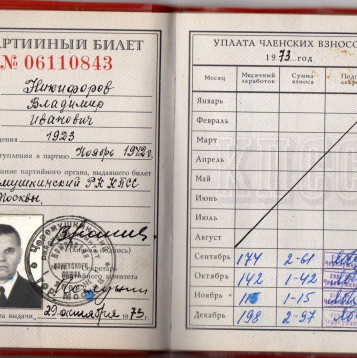 ПАРТИЙНЫЙ БИЛЕТ
№ 06110843
Никифоров
Владимир
Иванович
1923
вступления в партию Ноябрь 1942 г.
партийного органа, выдавшего билет
РК КПСС
Москвы
(Личная подпись)
Секретарь
комитета
выдачи 29 октября 1973 г.
УПЛАТА ЧЛЕНСКИХ ВЗНОСОВ
1973 год
Месяц Месячный заработок Сумма взноса
Январь
Февраль
Март
Апрель
Май
Июнь
Июль
Август
Сентябрь 174 2-61
Октябрь 142 1-42
Ноябрь 1-15
Декабрь 198 2-97